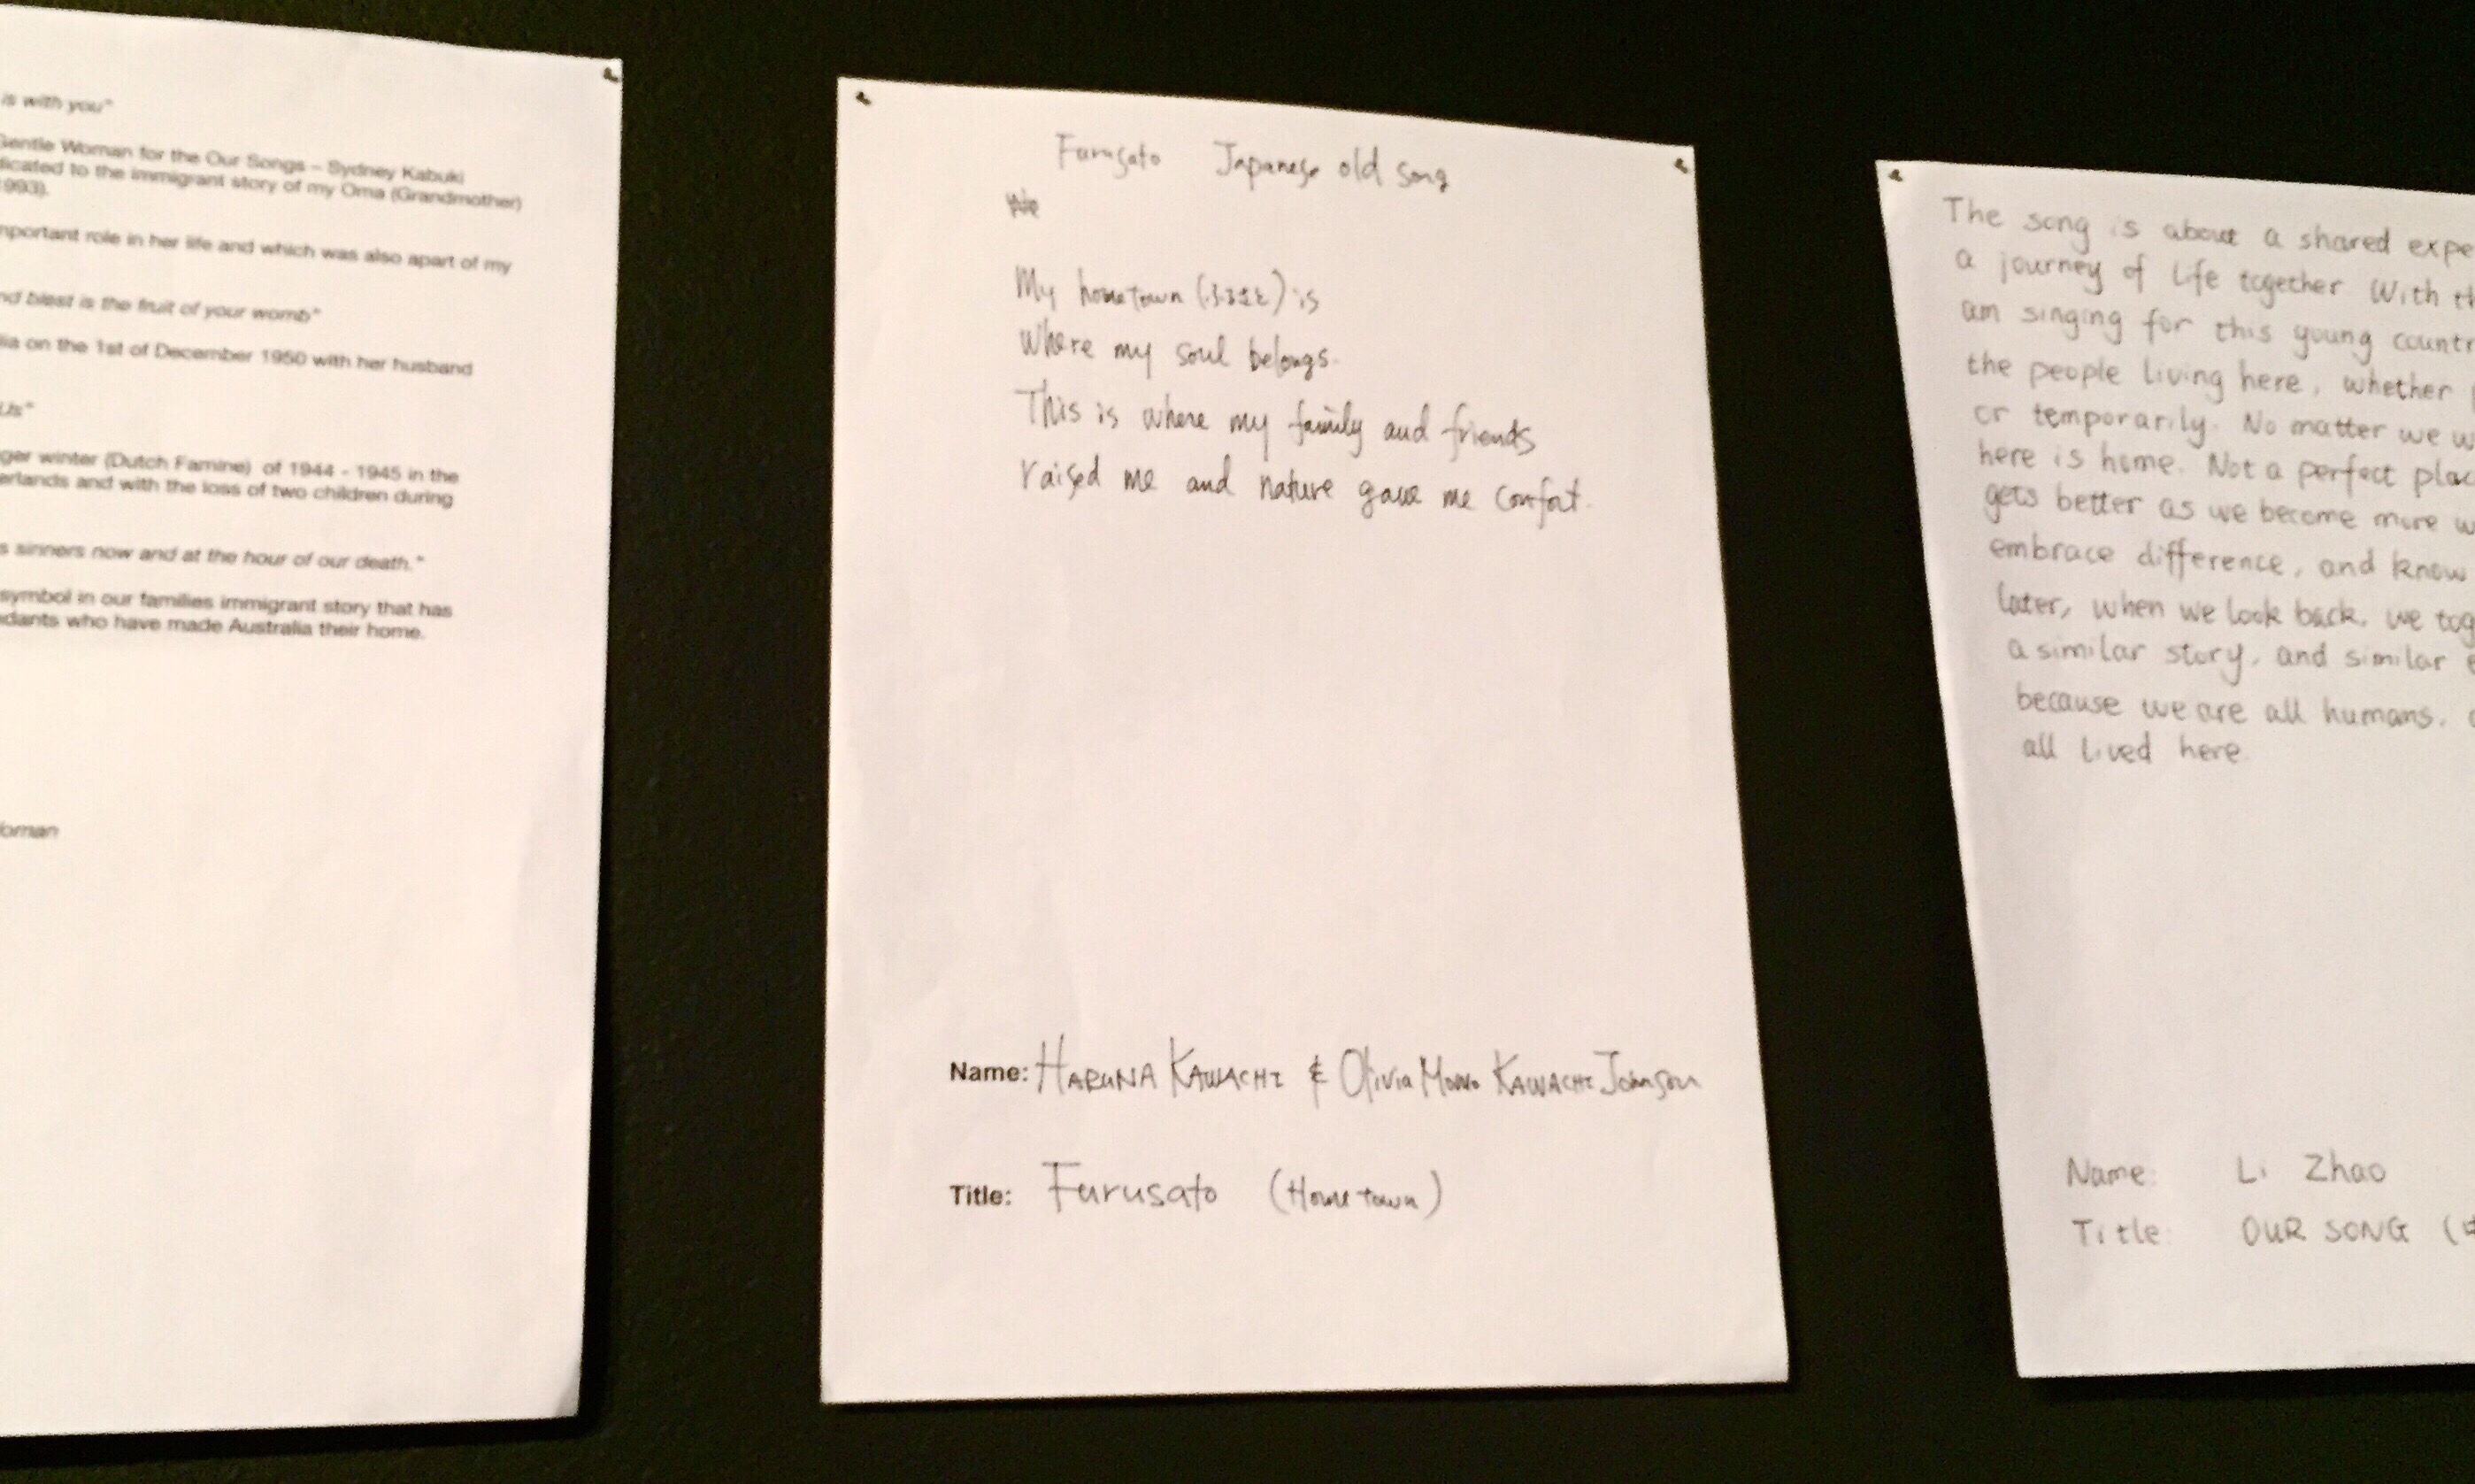 is with you"
Gentle Woman for the Our Songs – Sydney Kabuki
dicated to the immigrant story of my Oma (Grandmother)
1993).
mportant role in her life and which was also apart of my
nd blest is the fruit of your womb"
lia on the 1st of December 1950 with her husband
Us"
ger winter (Dutch Famine) of 1944 - 1945 in the
erlands and with the loss of two children during
s sinners now and at the hour of our death."
symbol in our families immigrant story that has
ndants who have made Australia their home.
Woman
Furusato Japanese old song
My hometown (ふるさと) is
where my soul belongs.
This is where my family and friends
raised me and nature gave me comfort.
Name: HARUNA KAWACHI & Olivia KAWACHI Johnson
Title: Furusato (Hometown)
The song is about a shared expe
a journey of life together With th
am singing for this young countr
the people living here, whether p
or temporarily. No matter we w
here is home. Not a perfect plac
gets better as we become more w
embrace difference, and know
later, when we look back, we tog
a similar story, and similar e
because we are all humans.
all lived here.
Name: Li Zhao
Title: OUR SONG (